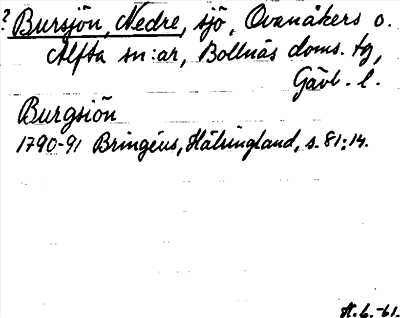 ? Bursjön, Nedre, sjö, Ovanåkers o.
Alfta sn:ar, Bollnäs doms. tg,
Gävl. l.
Burgsiön
1790-91 Bringéus, Hälsingland, s. 81:14.
H. 6. -61.